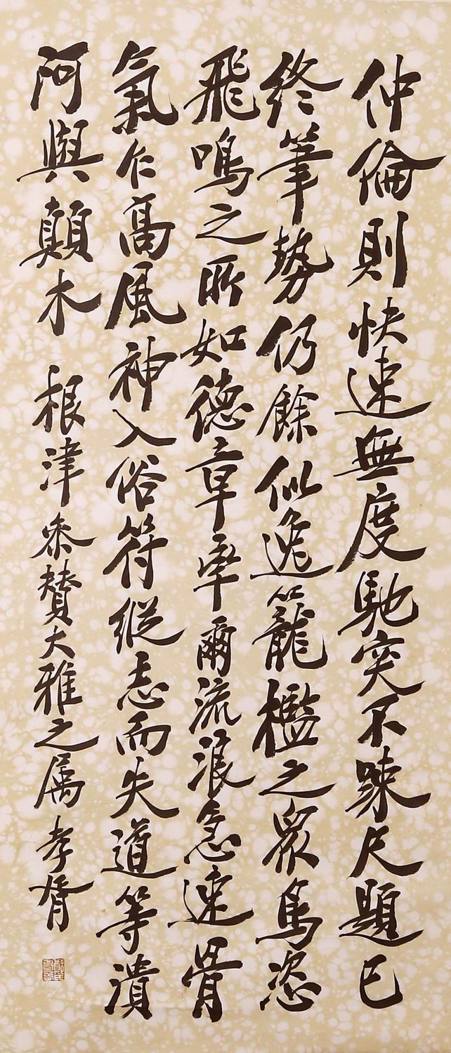 仲倫則快速無度馳突不疎尺題已
終筆勢仍餘似逸籠檻之眾鳥恣
飛鳴之所如德章率爾流浪急速骨
氣仁高風神入俗符縱志而失道等潰
阿與顛木 根津叅贊大雅之属 孝胥